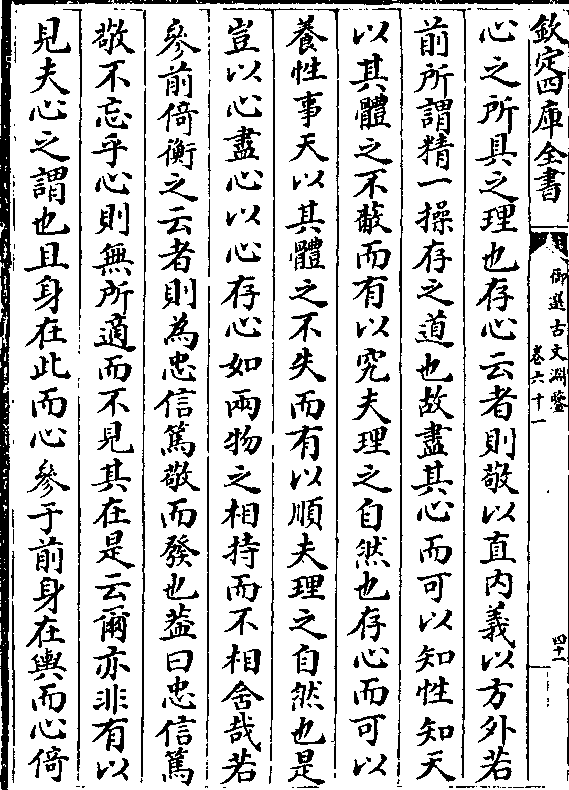 欽定四庫全書
御選古文淵鑒
卷六十一
四十一
心之所具之理也存心云者則敬以直内義以方外若
前所謂精一操存之道也故盡其心而可以知性知天
以其體之不蔽而有以究夫理之自然也存心而可以
養性事天以其體之不失而有以順夫理之自然也是
豈以心盡心以心存心如兩物之相持而不相舍哉若
參前倚衡之云者則為忠信篤敬而發也葢曰忠信篤
敬不忘乎心則無所適而不見其在是云爾亦非有以
見夫心之謂也且身在此而心參于前身在輿而心倚